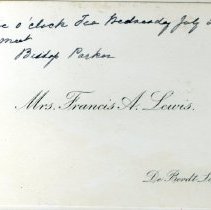 o'clock Tea Wednesday July
meet
Bishop Parker
Mrs. Francis A. Lewis.
De